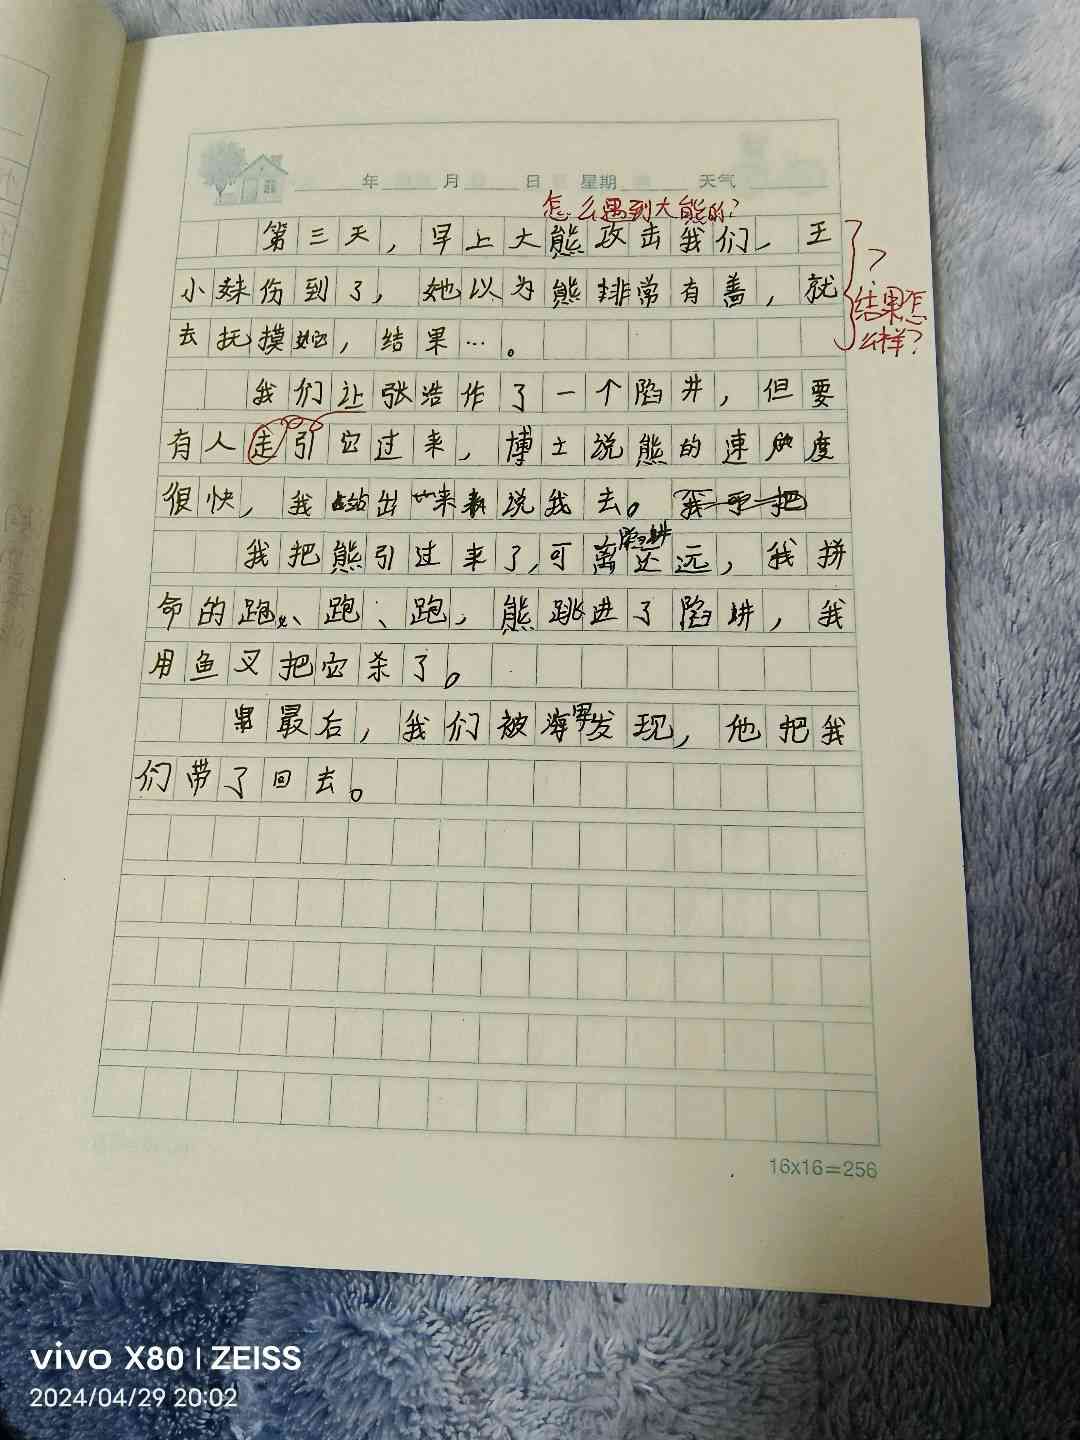 年 月 日 星期 天气
怎么遇到大熊的?
第三天,早上大熊攻击我们,王
小妹伤到了,她以为熊非常有善,就
去抚摸她,结果…。
?
结果怎
么样?
我们让张浩作了一个陷井,但要
有人走引它过来,博士说熊的速度
很快,我站出来说我去。我
我把熊引过来了,可离陷阱还远,我拼
命的跑、跑、跑,熊跳进了陷阱,我
用鱼叉把它杀了。
最后,我们被海军发现,他把我
们带了回去。
16x16=256
vivo X80 | ZEISS
2024/04/29 20:02